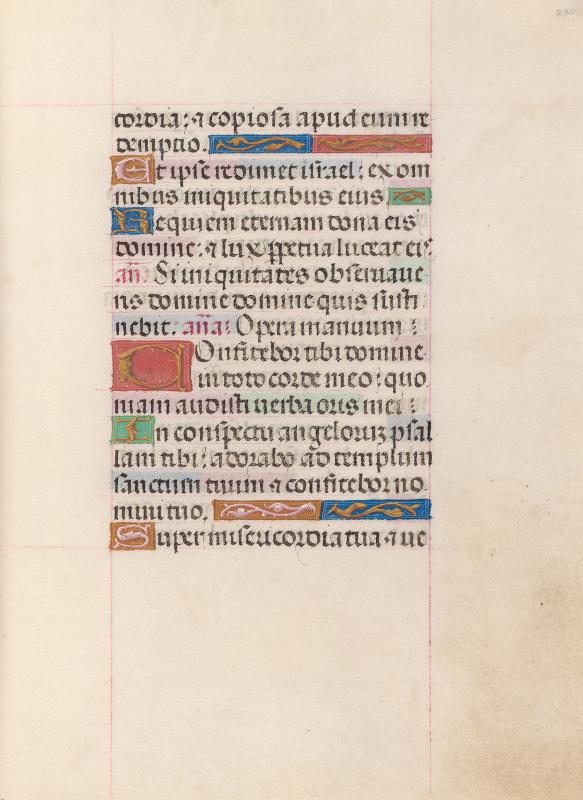 230
cordia: ⁊ copiosa apud eum re
demptio.
Et ipse redimet israel: ex om
nibus iniquitatibus eius.
Requiem eternam dona eis
domine: ⁊ lux ꝑpetua luceat eis.
an̄. Si iniquitates obseruaue
ris domine domine quis susti
nebit. an̄a: Opera manuum:
Confitebor tibi domine
in toto corde meo: quo
niam audisti uerba oris mei:
In conspectu angeloruꝫ psal
lam tibi: adorabo ad templum
sanctum tuum ⁊ confitebor no
mini tuo.
Super misericordia tua ⁊ ue